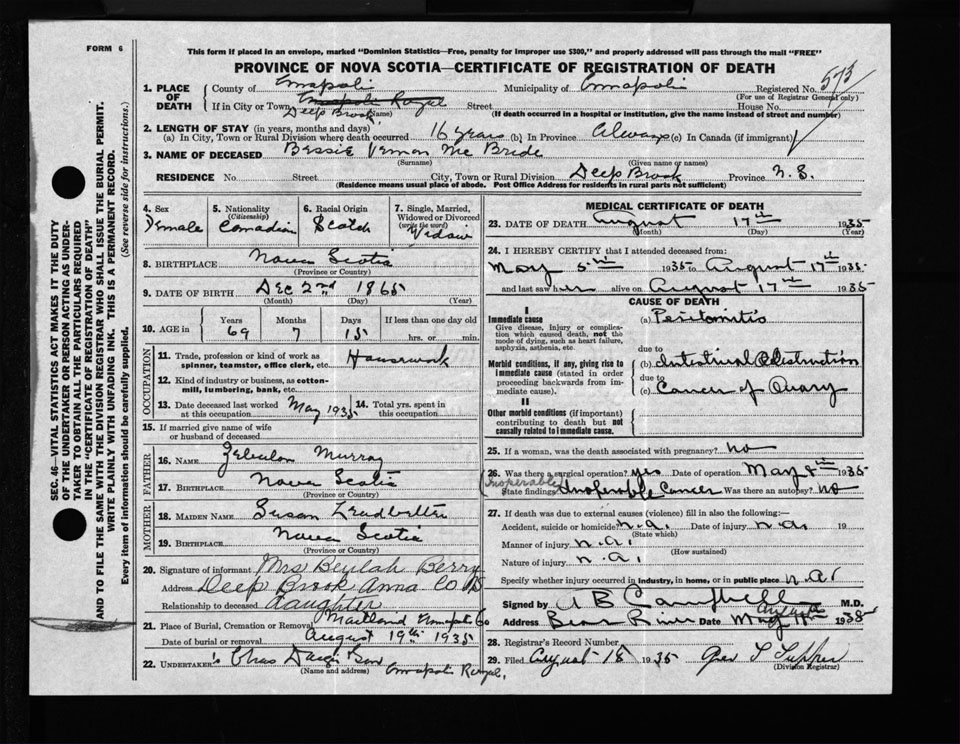 FORM 6
This form if placed in an envelope, marked "Dominion Statistics—Free, penalty for improper use $300," and properly addressed will pass through the mail "FREE"
PROVINCE OF NOVA SCOTIA—CERTIFICATE OF REGISTRATION OF DEATH
SEC. 46—VITAL STATISTICS ACT MAKES IT THE DUTY
OF THE UNDERTAKER OR PERSON ACTING AS UNDER-
TAKER TO OBTAIN ALL THE PARTICULARS REQUIRED
IN THE "CERTIFICATE OF REGISTRATION OF DEATH"
AND TO FILE THE SAME WITH THE DIVISION REGISTRAR WHO SHALL ISSUE THE BURIAL PERMIT.
WRITE PLAINLY WITH UNFADING INK. THIS IS A PERMANENT RECORD.
Every item of information should be carefully supplied. (See reverse side for instructions.)
1. PLACE OF DEATH
County of Annapolis Municipality of Annapolis Registered No. 573
(For use of Registrar General only)
If in City or Town Annapolis Royal Street House No.
Deep Brook (Name) (If death occurred in a hospital or institution, give the name instead of street and number)
2. LENGTH OF STAY (in years, months and days)
(a) In City, Town or Rural Division where death occurred 16 years (b) In Province Always (c) In Canada (if immigrant)
3. NAME OF DECEASED Bessie Vernon Mc Bride
(Surname) (Given name or names)
RESIDENCE No. Street City, Town or Rural Division Deep Brook Province N.S.
(Residence means usual place of abode. Post Office Address for residents in rural parts not sufficient)
4. Sex Female
5. Nationality (Citizenship) Canadian
6. Racial Origin Scotch
7. Single, Married, Widowed or Divorced (write the word) Widow
8. BIRTHPLACE Nova Scotia
(Province or Country)
9. DATE OF BIRTH Dec 2nd 1865
(Month) (Day) (Year)
10. AGE in Years 69 Months 7 Days 15 If less than one day old hrs. or min.
OCCUPATION
11. Trade, profession or kind of work as spinner, teamster, office clerk, etc. Housework
12. Kind of industry or business, as cotton-mill, lumbering, bank, etc.
13. Date deceased last worked at this occupation May 1935
14. Total yrs. spent in this occupation
15. If married give name of wife or husband of deceased
FATHER
16. NAME Zebulon Murray
17. BIRTHPLACE Nova Scotia
(Province or Country)
MOTHER
18. MAIDEN NAME Susan
19. BIRTHPLACE Nova Scotia
(Province or Country)
20. Signature of informant Mrs Beulah Berry
Address Deep Brook Anna Co NS
Relationship to deceased daughter
21. Place of Burial, Cremation or Removal Maitland Annapolis Co
Date of burial or removal August 19th 1935
22. UNDERTAKER Chas Annapolis Royal.
(Name and address)
MEDICAL CERTIFICATE OF DEATH
23. DATE OF DEATH August 17th 1935
(Month) (Day) (Year)
24. I HEREBY CERTIFY that I attended deceased from:
May 5th 1935 to August 17th 1935
and last saw her alive on August 17th 1935
CAUSE OF DEATH
I
Immediate cause (a) Peritonitis
Give disease, injury or complication which caused death, not the mode of dying, such as heart failure, asphyxia, asthenia, etc.
due to
Morbid conditions, if any, giving rise to immediate cause (stated in order proceeding backwards from immediate cause). (b) Intestinal Obstruction
due to
(c) Cancer of Ovary
II
Other morbid conditions (if important) contributing to death but not causally related to immediate cause.
25. If a woman, was the death associated with pregnancy? no
26. Was there a surgical operation? yes Date of operation May 8th 1935
(Inoperable)
State findings Inoperable Cancer Was there an autopsy? no
27. If death was due to external causes (violence) fill in also the following:—
Accident, suicide or homicide? n.a. Date of injury n.a. 19
(State which)
Manner of injury n.a.
(How sustained)
Nature of injury n.a.
Specify whether injury occurred in industry, in home, or in public place n.a.
Signed by A B Campbell M.D.
August
Address Bear River Date May 17th 1935
28. Registrar's Record Number
29. Filed August 18 1935 Tupper
(Division Registrar)